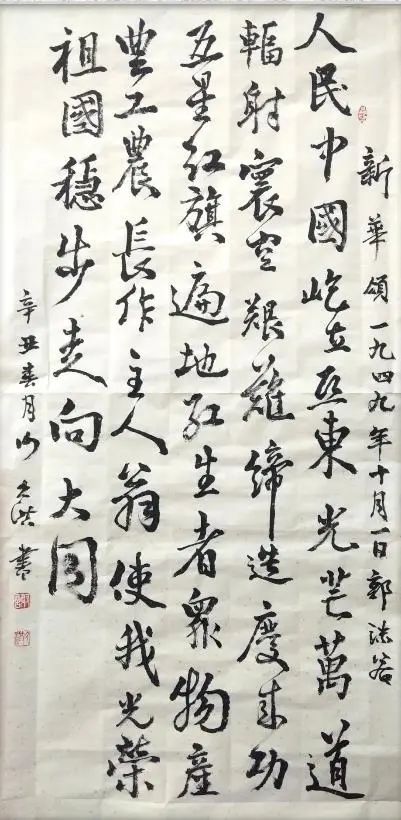 新華頌一九四九年十月一日郭沫若
人民中國屹立亞東光芒萬道
輻射寰空艱難締造慶成功
五星紅旗遍地紅生者眾物產
豐工農長作主人翁使我光榮
祖國穩步走向大同
辛丑春月書